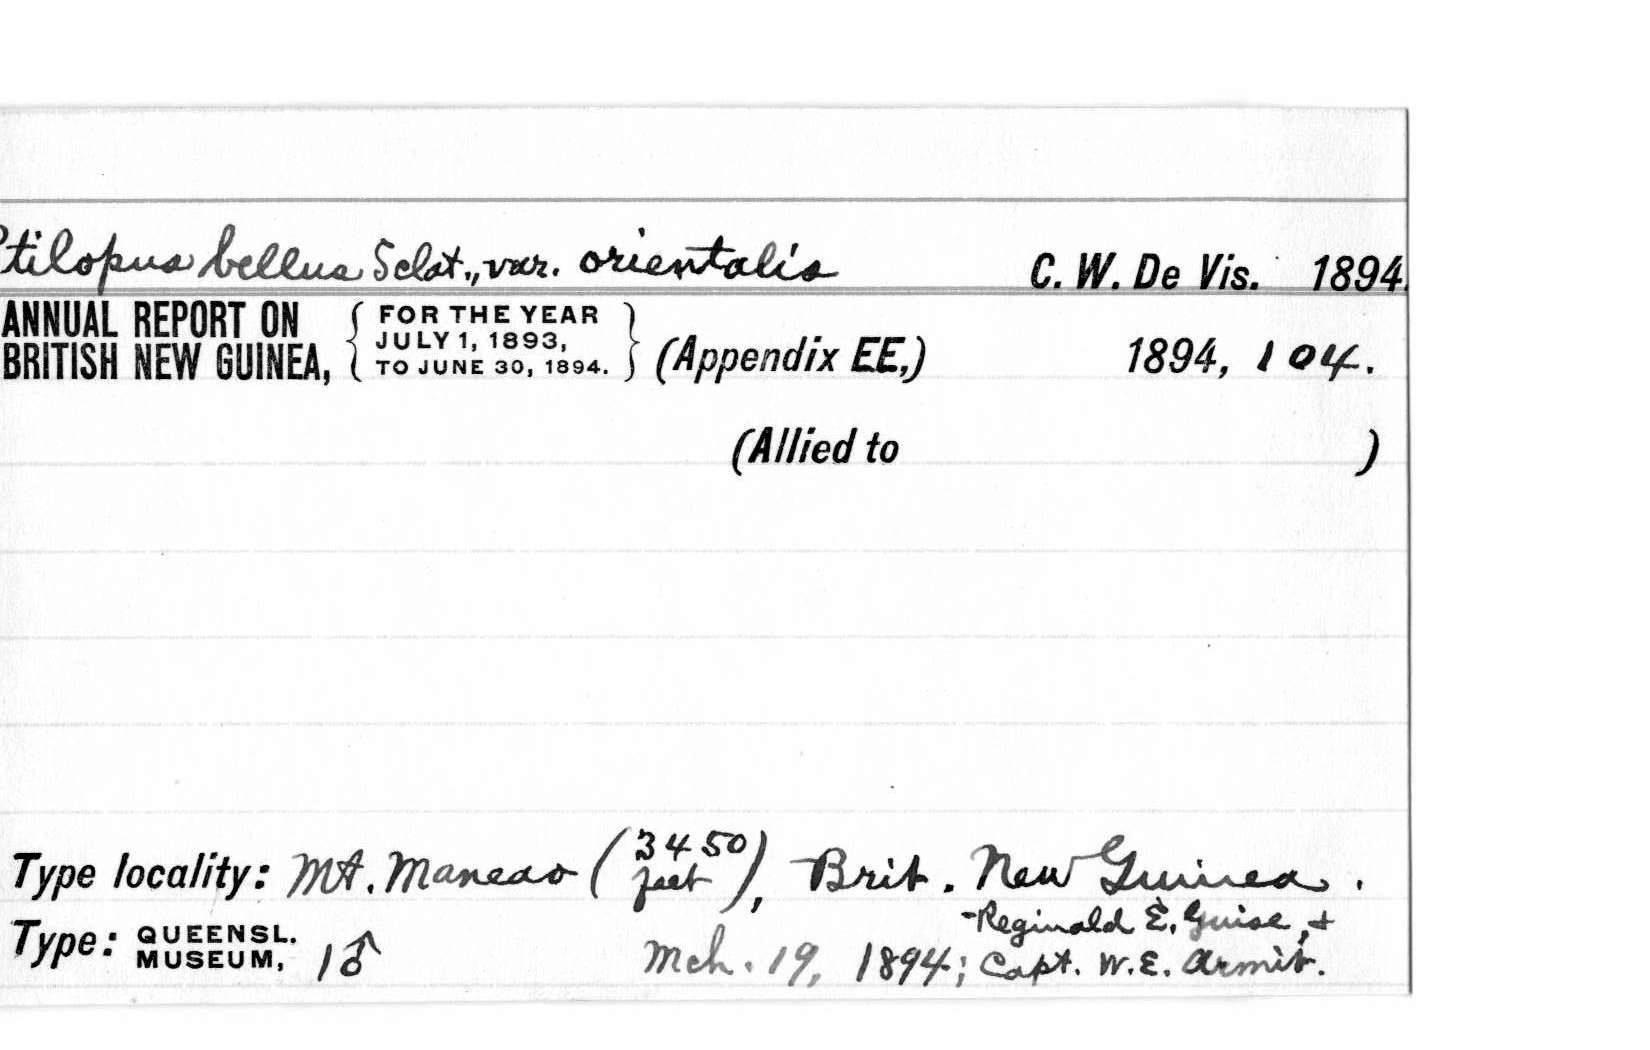 Ptilopus bellus Sclat., var. orientalis C. W. De Vis. 1894.
ANNUAL REPORT ON BRITISH NEW GUINEA, { FOR THE YEAR JULY 1, 1893, TO JUNE 30, 1894. } (Appendix EE,) 1894, 104.
(Allied to )
Type locality: Mt. Maneao (3450 feet), Brit. New Guinea.
Type: QUEENSL. MUSEUM, 1♂ Mch. 19, 1894; Reginald E. Guise, & Capt. W. E. Armit.